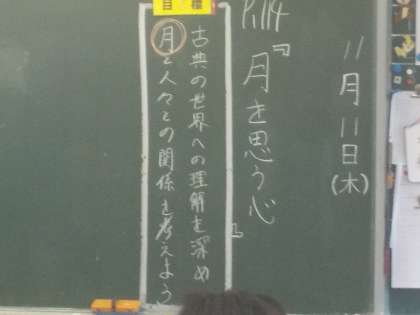 11月11日(木)
P.114
『月を思う心』
目標
古典の世界への理解を深め
月と人々との関係を考えよう